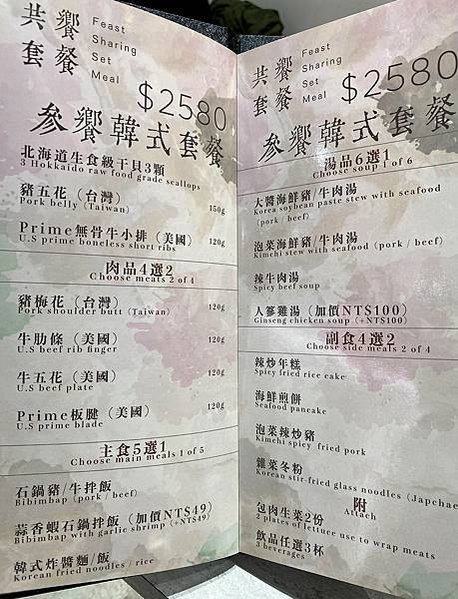 共饗套餐
Feast
Sharing
Set
Meal
$2580
參饗韓式套餐
北海道生食級干貝3顆
3 Hokkaido raw food grade scallops
豬五花（台灣）
Pork belly (Taiwan)
150g
Prime無骨牛小排（美國）
U.S prime boneless short ribs
120g
肉品4選2
Choose meats 2 of 4
豬梅花（台灣）
Pork shoulder butt (Taiwan)
120g
牛肋條（美國）
U.S beef rib finger
120g
牛五花（美國）
U.S beef plate
120g
Prime板腱（美國）
U.S prime blade
120g
主食5選1
Choose main meals 1 of 5
石鍋豬/牛拌飯
Bibimbap (pork / beef)
蒜香蝦石鍋拌飯（加價NT$49）
Bibimbap with garlic shrimp (+NT$49)
韓式炸醬麵/飯
Korean fried noodles / rice
共饗套餐
Feast
Sharing
Set
Meal
$2580
參饗韓式套餐
湯品6選1
Choose soup 1 of 6
大醬海鮮豬/牛肉湯
Korea soybean paste stew with seafood
(pork / beef)
泡菜海鮮豬/牛肉湯
Kimchi stew with seafood (pork / beef)
辣牛肉湯
Spicy beef soup
人篸雞湯（加價NT$100）
Ginseng chicken soup (+NT$100)
副食4選2
Choose side meals 2 of 4
辣炒年糕
Spicy fried rice cake
海鮮煎餅
Seafood pancake
泡菜辣炒豬
Kimchi spicy fried pork
雜菜冬粉
Korean stir-fried glass noodles (Japchae
附
Attach
包肉生菜2份
2 plates of lettuce use to wrap meats
飲品任選3杯
3 beverages